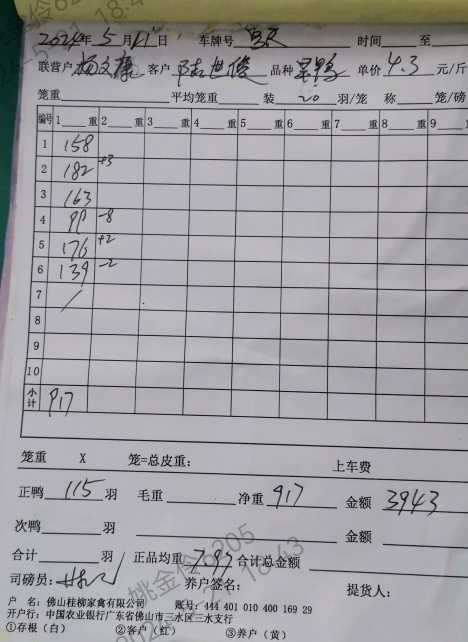 2024年5月11日 车牌号 时间 至
联营户 杨文广 客户 陆世俊 品种 单价 4.3 元/斤
笼重 平均笼重 装 20 羽/笼 称 笼/磅
编号 1 重 2 重 3 重 4 重 5 重 6 重 7 重 8 重 9
1 158
2 182 +3
3 163
4 99 -8
5 176 +2
6 139 -2
7 /
8
9
10
小计 917
笼重 X 笼=总皮重: 上车费
正鸭 115 羽 毛重 净重 917 金额 3943
次鸭 羽 金额
合计 羽 正品均重 7.97 合计总金额
司磅员: 养户签名: 提货人:
户 名: 佛山桂柳家禽有限公司 账号: 444 401 010 400 169 29
开户行: 中国农业银行广东省佛山市三水区三水支行
①存根（白） ②客户（红） ③养户（黄）